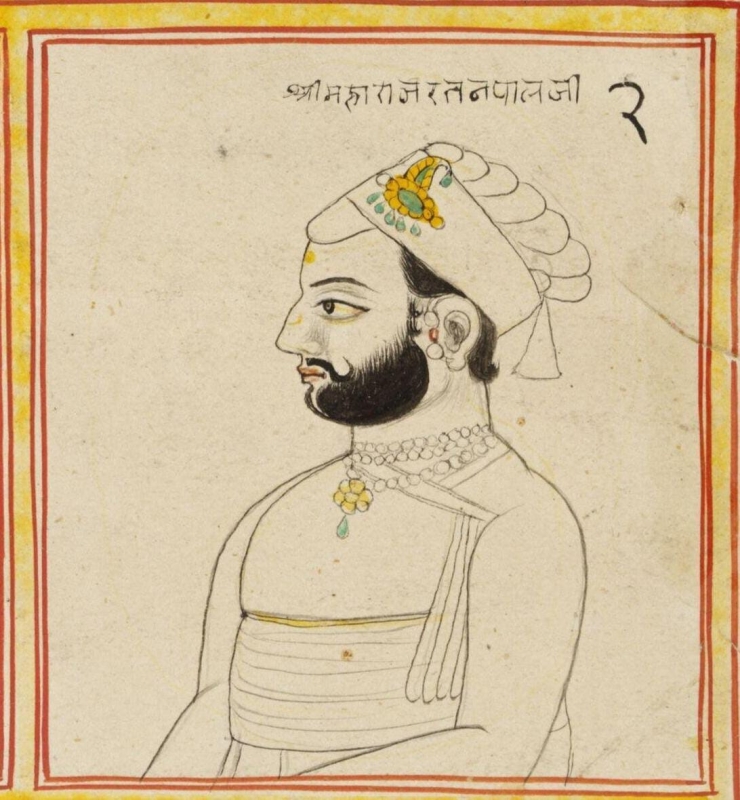 श्रीमहाराजरतनपालजी २